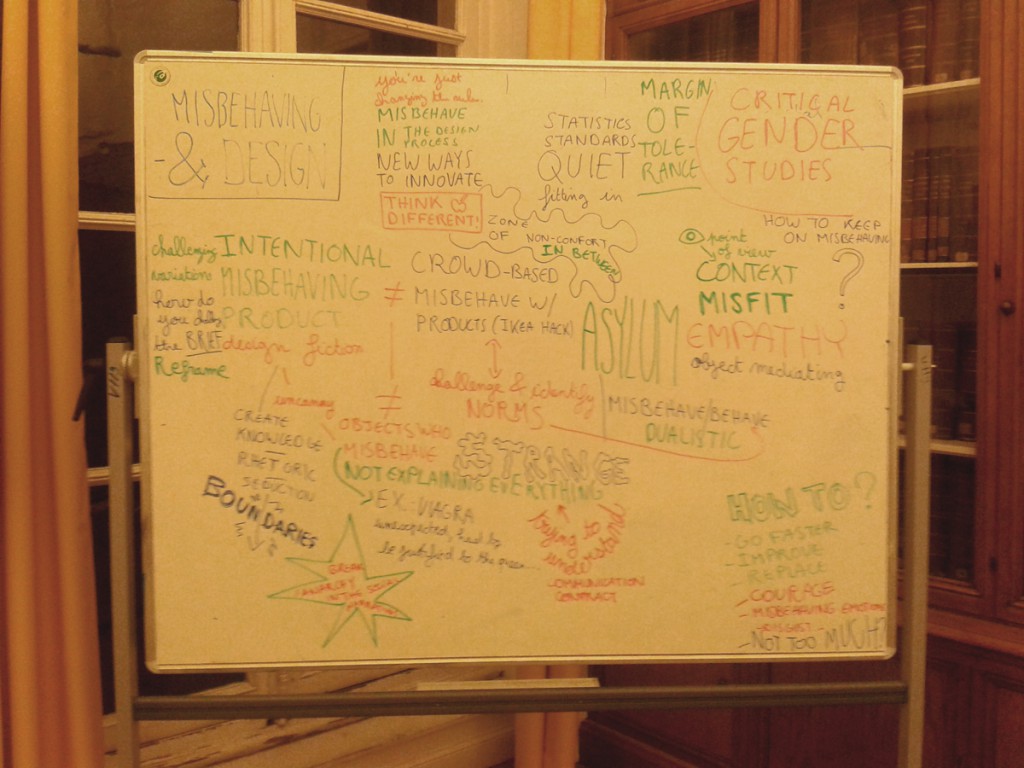 MISBEHAVING
& DESIGN
you're just
changing the rules
MISBEHAVE
IN THE DESIGN
PROCESS
NEW WAYS
TO INNOVATE
THINK
DIFFERENT!
STATISTICS
STANDARDS
QUIET
fitting in
MARGIN
OF
TOLE-
RANCE
CRITICAL
GENDER
STUDIES
HOW TO KEEP
ON MISBEHAVING
?
ZONE
OF NON-CONFORT
IN BETWEEN
point
of view
CONTEXT
MISFIT
EMPATHY
object mediating
challenging
variations
INTENTIONAL
MISBEHAVING
PRODUCT
how do
you
the BRIEF
design fiction
Reframe
≠
CROWD-BASED
MISBEHAVE W/
PRODUCTS (IKEA HACK)
ASYLUM
challenge & identify
NORMS
MISBEHAVE/BEHAVE
DUALISTIC
uncanny
≠
CREATE
KNOWLEDGE
RHETORIC
SEDUCTION
BOUNDARIES
OBJECTS WHO
MISBEHAVE
STRANGE
NOT EXPLAINING EVERYTHING
EX: VIAGRA
unexpected, had to
be justified to the queen
trying to
understand
COMMUNICATION
CONTRACT
BREAK
ANARCHY
IN THE SOCIAL
HOW TO?
- GO FASTER
- IMPROVE
- REPLACE
- COURAGE
- MISBEHAVING EMOTION
- NOT TOO MUCH?